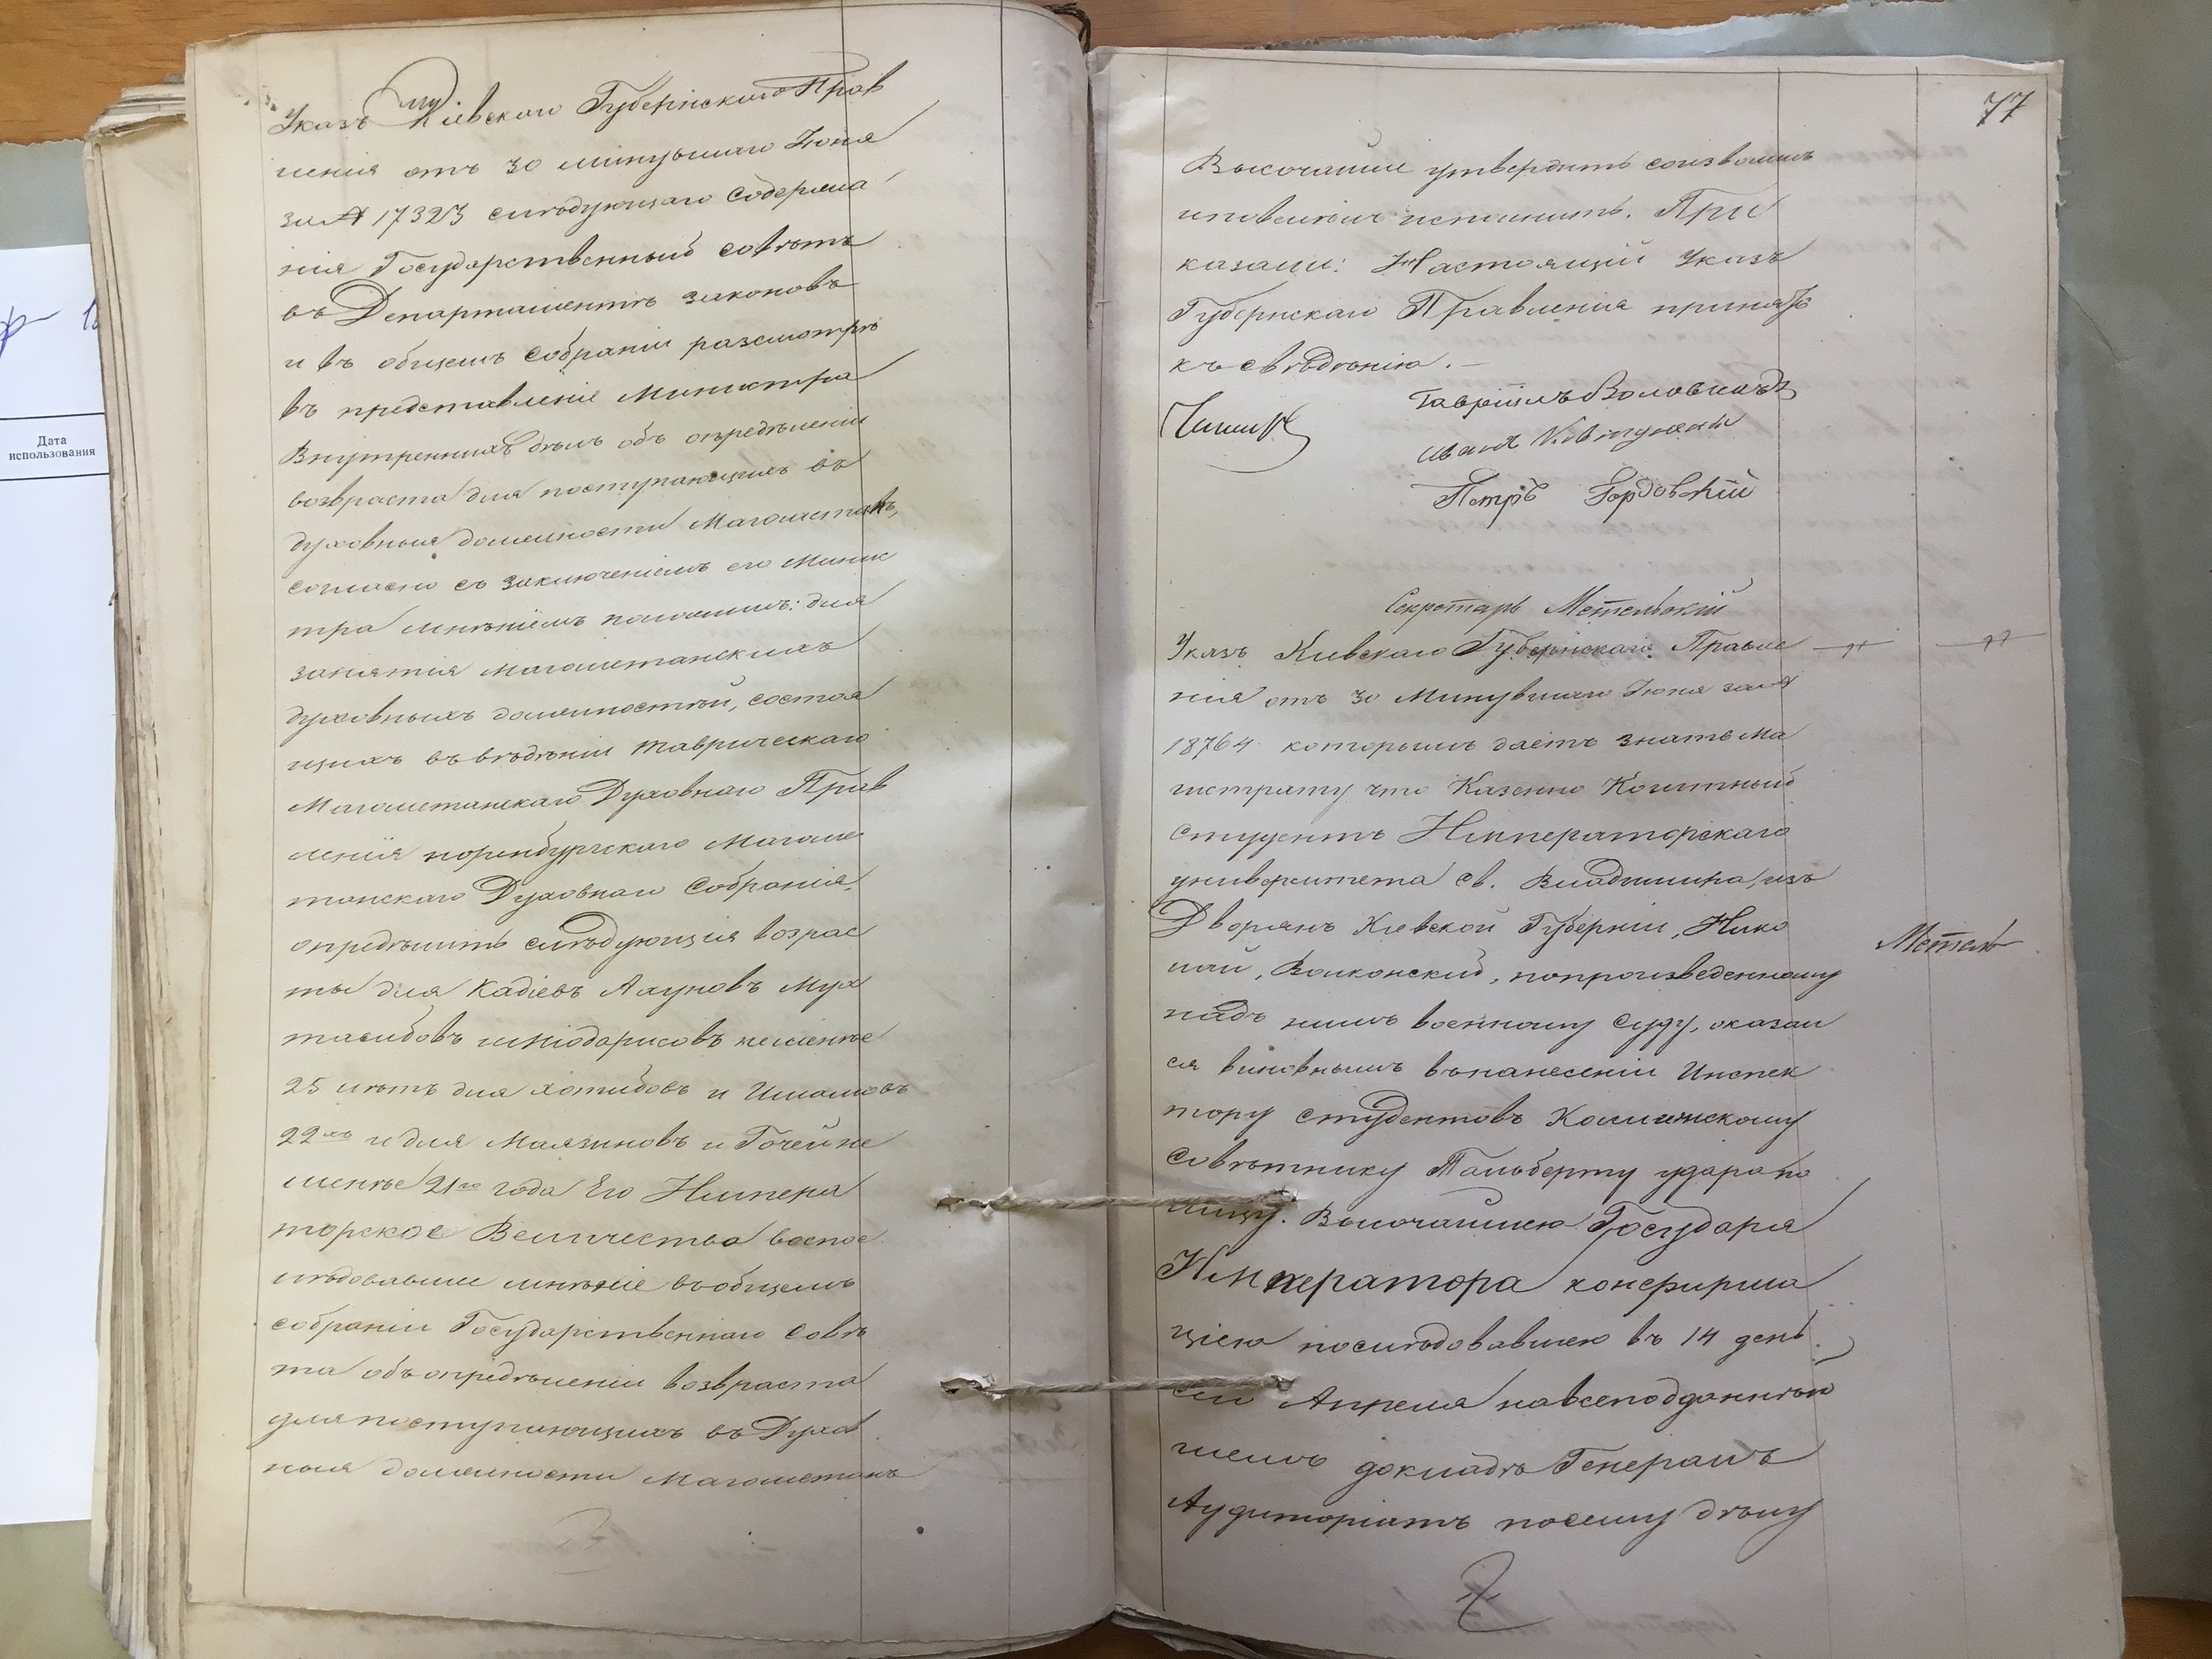 Дата
использования
Указъ Кіевскаго Губернскаго Прав
ленія отъ 30 минувшаго Іюня
за № 17323 слѣдующаго содержа
нія Государственный совѣтъ
въ Департаментѣ законовъ
и въ общемъ собраніи разсмотрѣ
въ представленіе Министра
Внутреннихъ дѣлъ объ опредѣленіи
возвраста для поступающихъ въ
духовныя должности Магометанъ,
согласно съ заключеніемъ его Минис
тра мнѣніемъ положилъ: для
занятія магометанскихъ
духовныхъ должностей, состоя
щихъ въ вѣдѣніи таврическаго
Магометанскаго Духовнаго Прав
ленія иоренбургскаго Магоме
танскаго Духовнаго Собранія,
опредѣлить слѣдующія возрас
ты для Кадіевъ Ахуновъ Мух
тасибовъ имюдарисовъ неменѣе
25 лѣтъ для хатибовъ и Имамовъ
22хъ и для Маязиновъ и Гочей не
менѣе 21го года Его Импера
торское Величество воспос
лѣдовавшее мнѣніе вобщемъ
собраніи Государственнаго Совѣ
та объ опредѣленіи возвраста
для поступающихъ въ Духов
ныя должности магометанъ
77
Высочайше утвердить соизволилъ
иповелѣлъ исполнить. При
казали: Настоящій Указъ
Губернскаго Правленія принять
къ свѣдѣнію.
Гавріилъ
Иванъ
Петръ Гордовскій
Секретарь Метельскій
Указъ Кіевскаго Губернскаго Правле
нія отъ 30 Минувшаго Іюня за №
18764 которымъ даетъ знать Ма
гистрату что Казенно Коштный
студентъ Императорскаго
университета св. Владимира, изъ
Дворянъ Кіевской Губерніи, Нико
лай, Волконскій, попроизведенному
надъ нимъ военному суду, оказал
ся виновнымъ внанесеніи Инспек
тору студентовъ Коллежскому
Совѣтнику Тальберту удара по
лицу. Высочайшею Государя
Императора конфирма
ціею послѣдовавшею въ 14 день
сего Апреля навсеподданнѣй
шемъ докладѣ Генералъ
Аудиторіатъ посему дѣлу
Метель